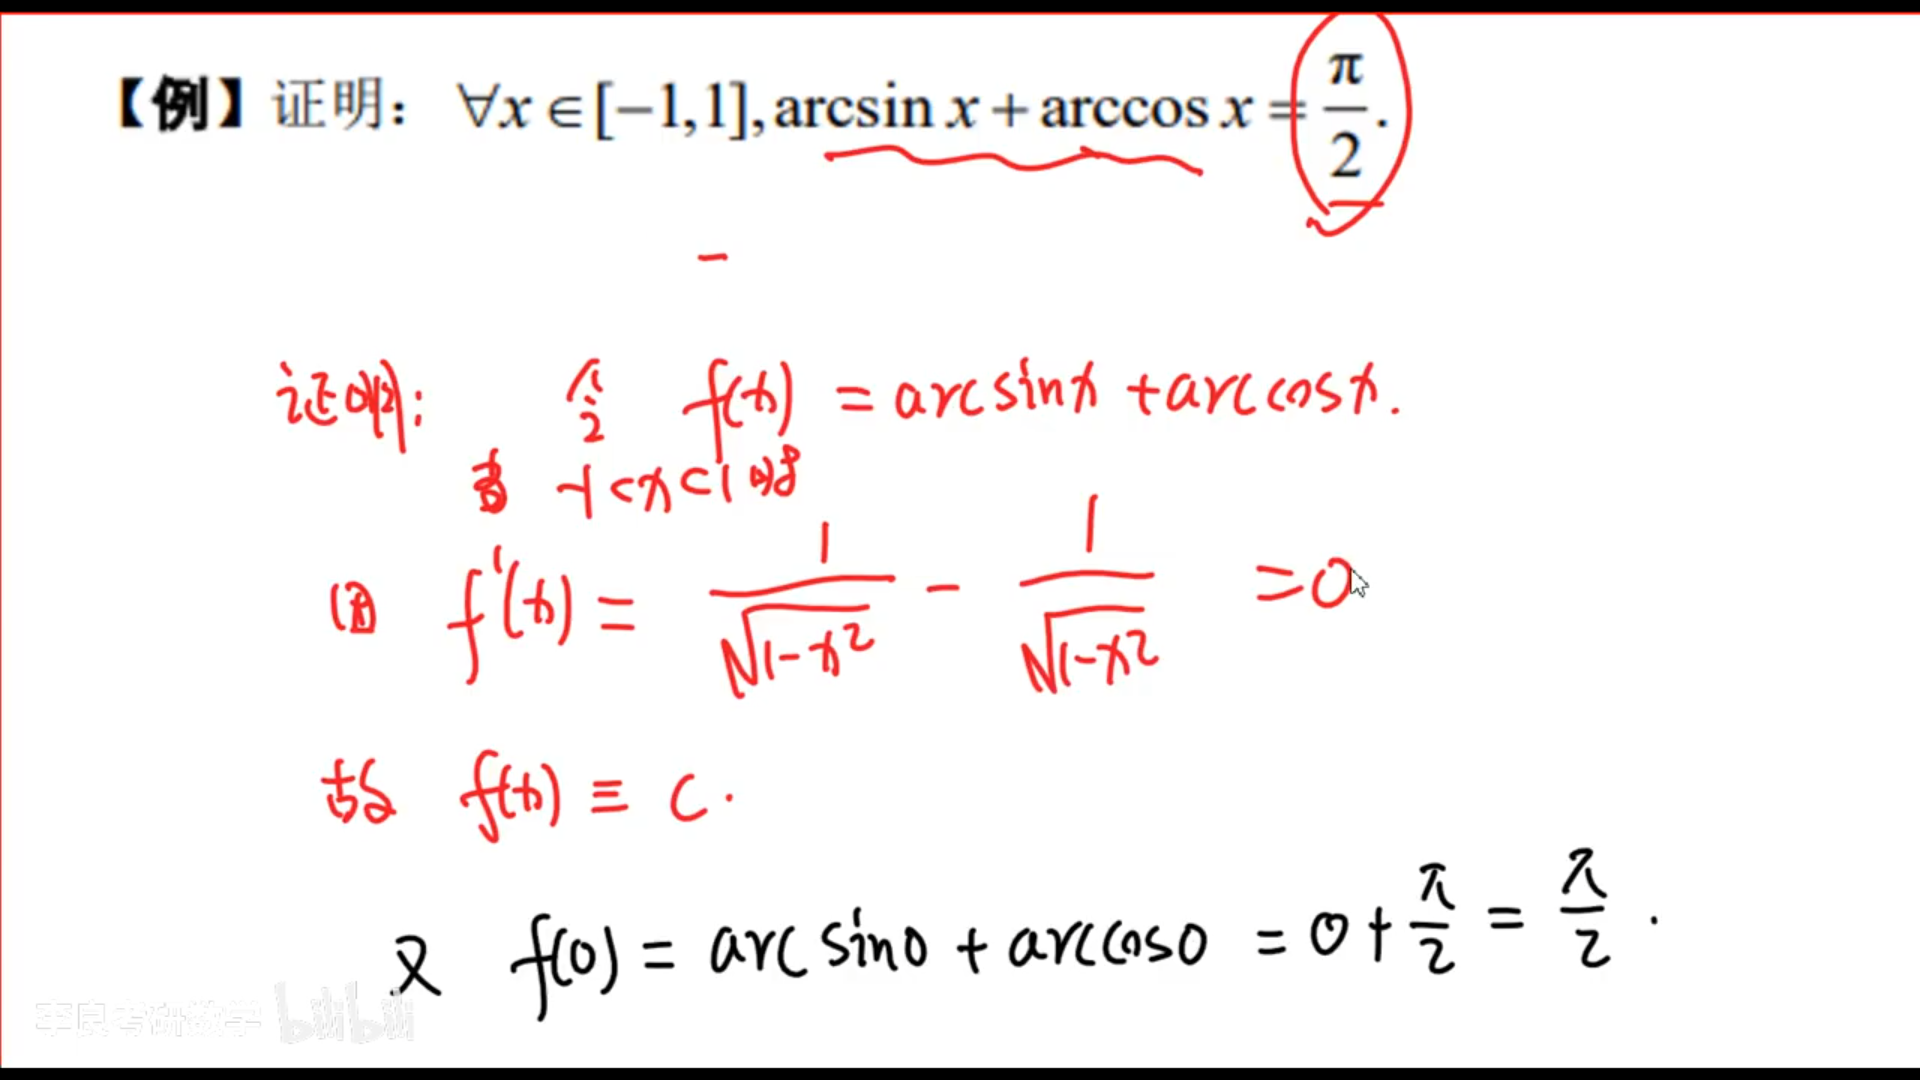 【例】证明： ∀x∈[−1,1], arcsin x + arccos x = π/2.
证明： 令 f(x) = arcsinx + arccosx.
当 -1<x<1时
因 f'(x) = 1/√(1-x²) - 1/√(1-x²) =0
故 f(x) ≡ C.
又 f(0) = arcsin0 + arccos0 = 0 + π/2 = π/2 .
李良考研数学 bilibili